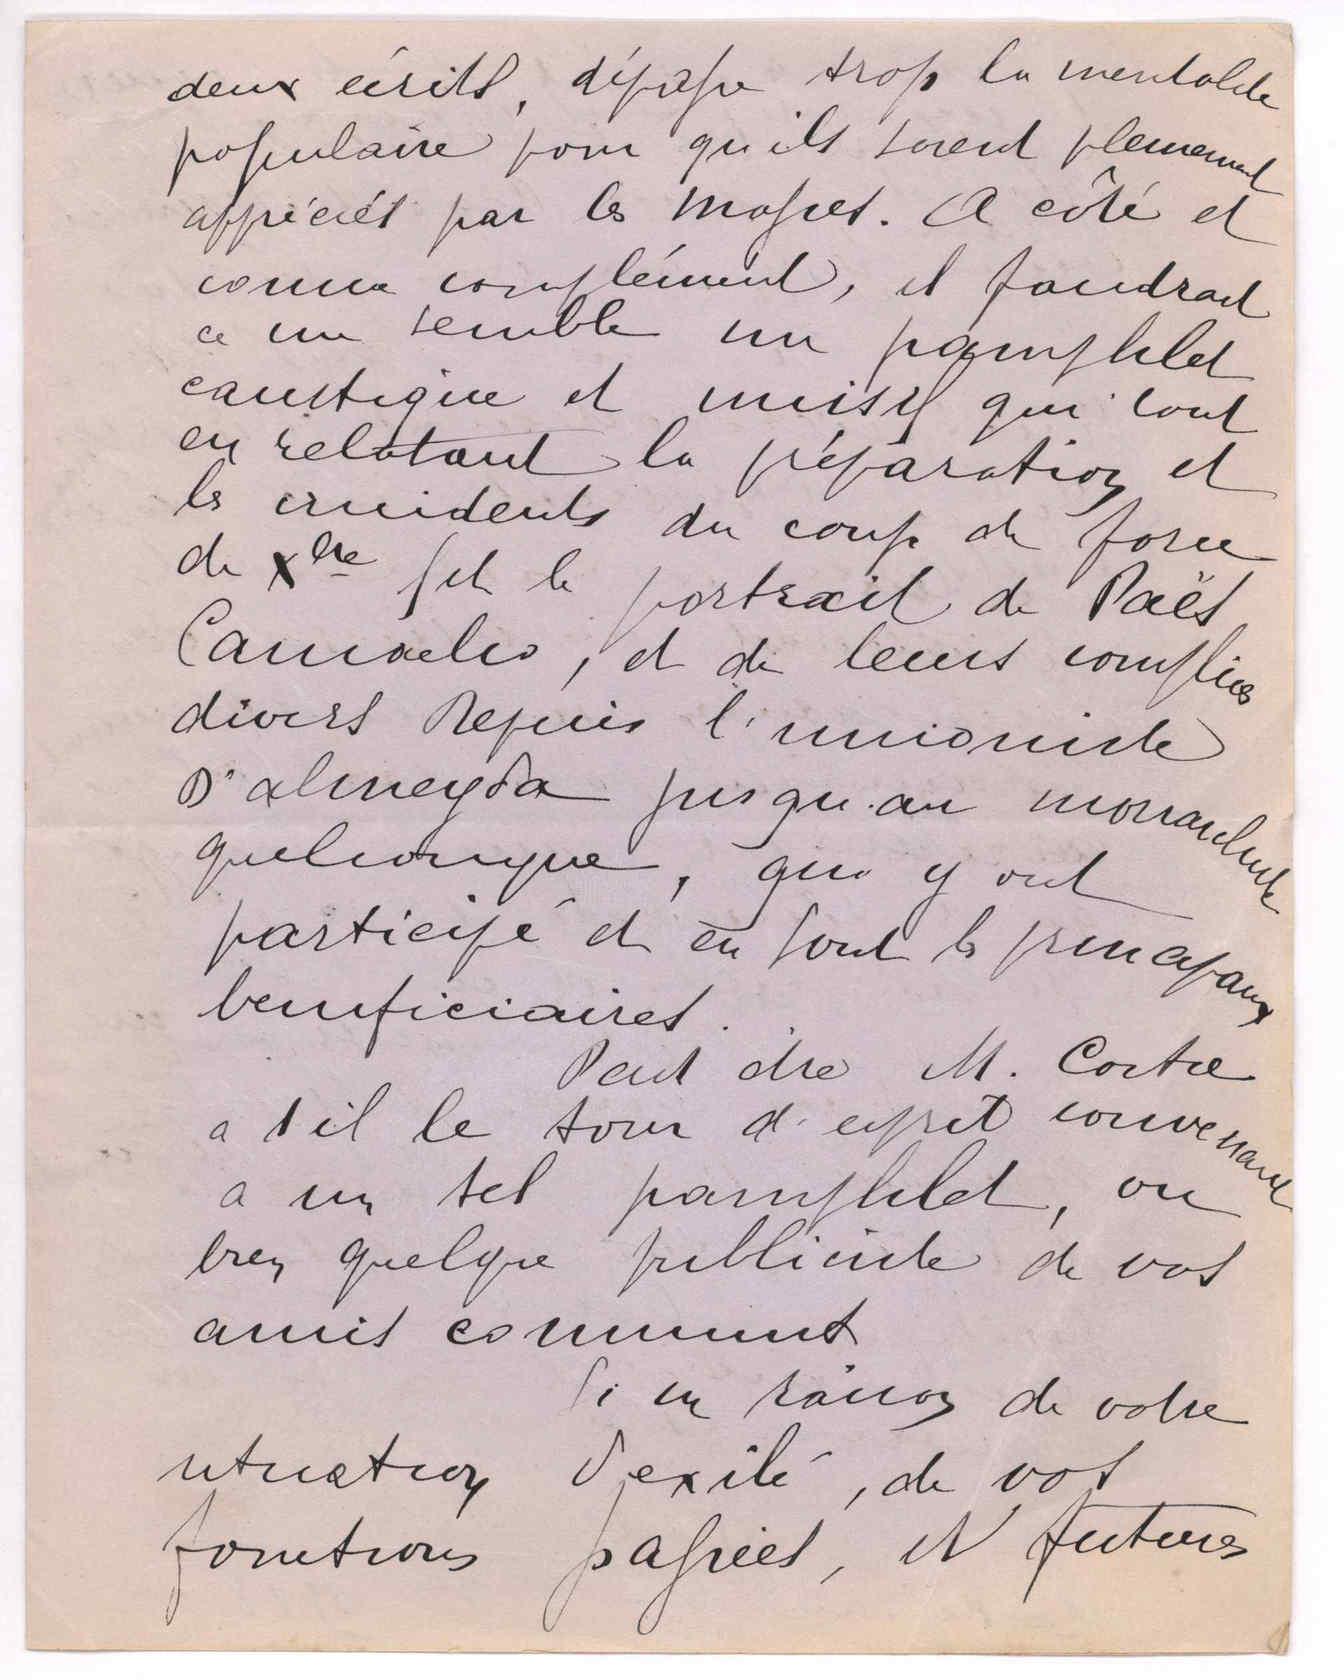 deux écrits, dépasse trop la mentalité
populaire pour qu'ils soient pleinement
appréciés par les masses. A côté et
comme complément, il faudrait
ce me semble un pamphlet
caustique et incisif qui tout
en relatant la préparation et
les incidents du coup de force
de Xbre fit le portrait de Paës
Camacho, et de leurs complices
divers depuis l'unioniste
D'almeyda jusqu'au monarchiste
quelconque, qui y ont
participé et en sont les principaux
beneficiaires.
Peut être M. Cortre
a t il le tour d'esprit convenant
a un tel pamphlet, ou
bien quelque publiciste de vos
amis communs
Si en raison de votre
situation d'exilé, de vos
fonctions passées, et futures